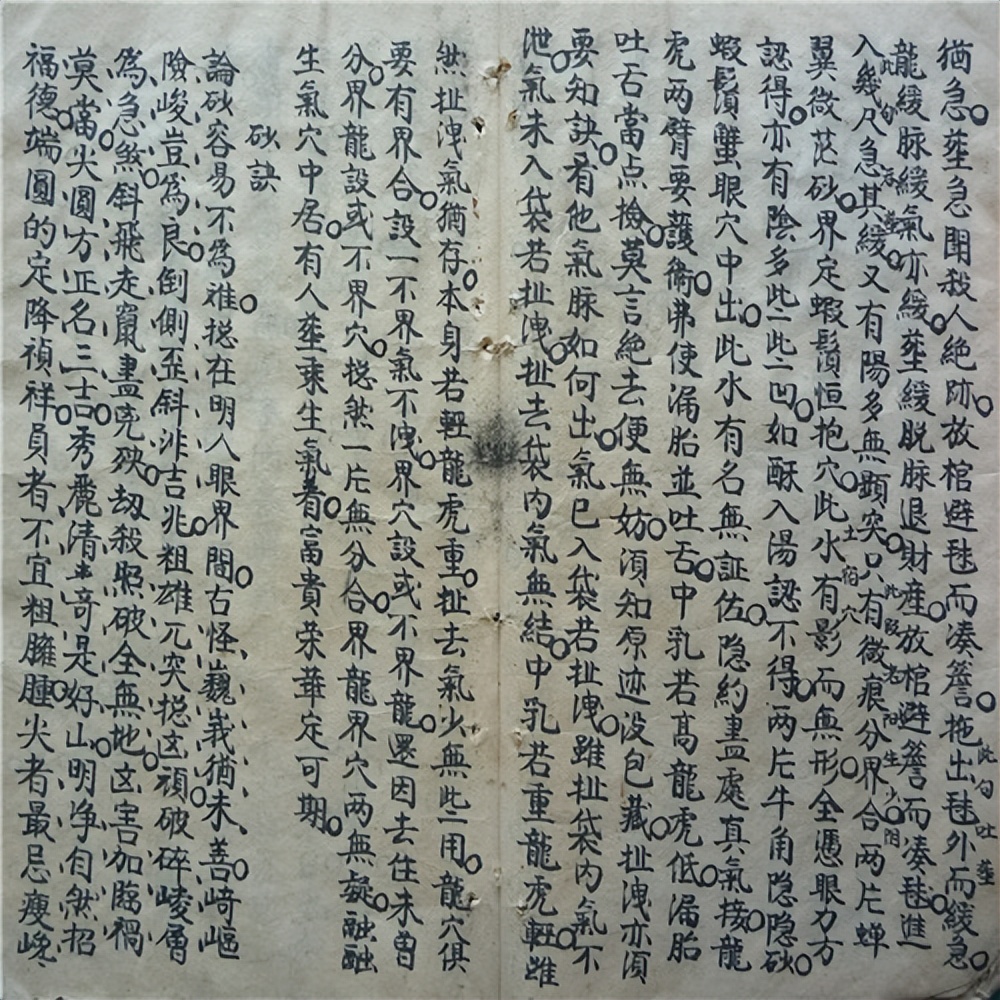 猶急塟急閗殺人絶跡放棺避毬而湊簷拖出毬外而緩急
此句吐塟
龍緩脉緩氣亦緩塟緩脱脉退財産放棺避簷而湊毬進
入幾尺急其緩又有陽多無顕突只有微痕分界合兩片蟬
翼微茫砂界定蝦鬚恒抱穴此水有影而無形全憑眼力方
認得亦有陰多此二些二凹如酥入湯認不得兩片牛角隐隐砂
蝦鬚蟹眼穴中出此水有名無証佐隐約盡處真氣接龍
虎两臂要護衛弗使漏胎並吐舌中乳若髙龍虎低漏胎
吐舌當点撿莫言絶去便無妨湏知原迹没包藏扯洩亦湏
要知訣看他氣脉如何出氣已入袋若扯洩雖扯袋内氣不
泄氣未入袋若扯洩扯去袋内氣無結中乳若重龍虎輕雖
然扯洩氣猶存本身若輕龍虎重扯去氣火無些用龍穴俱
要有界合設一不界氣不洩界穴設或不界龍還因去住未曽
分界龍設或不界穴捴然一片無分合界龍界穴两無疑融融
生氣穴中居有人塟乘生氣着富貴荣華定可期
砂訣
論砂容易不為难捴在明人眼界間古怪巍峩猶未善崎岖
險峻豈為良倒側歪斜非吉兆粗雄兀突捴凶頑破碎崚層
為急煞斜飛走竄盡兇殃刼殺照破全無地凶害加臨禍
莫當尖圓方正名三吉秀麗清奇是好山明净自然招
福德端圓的定降禎祥員者不宜粗臃腫尖者最忌瘦巉